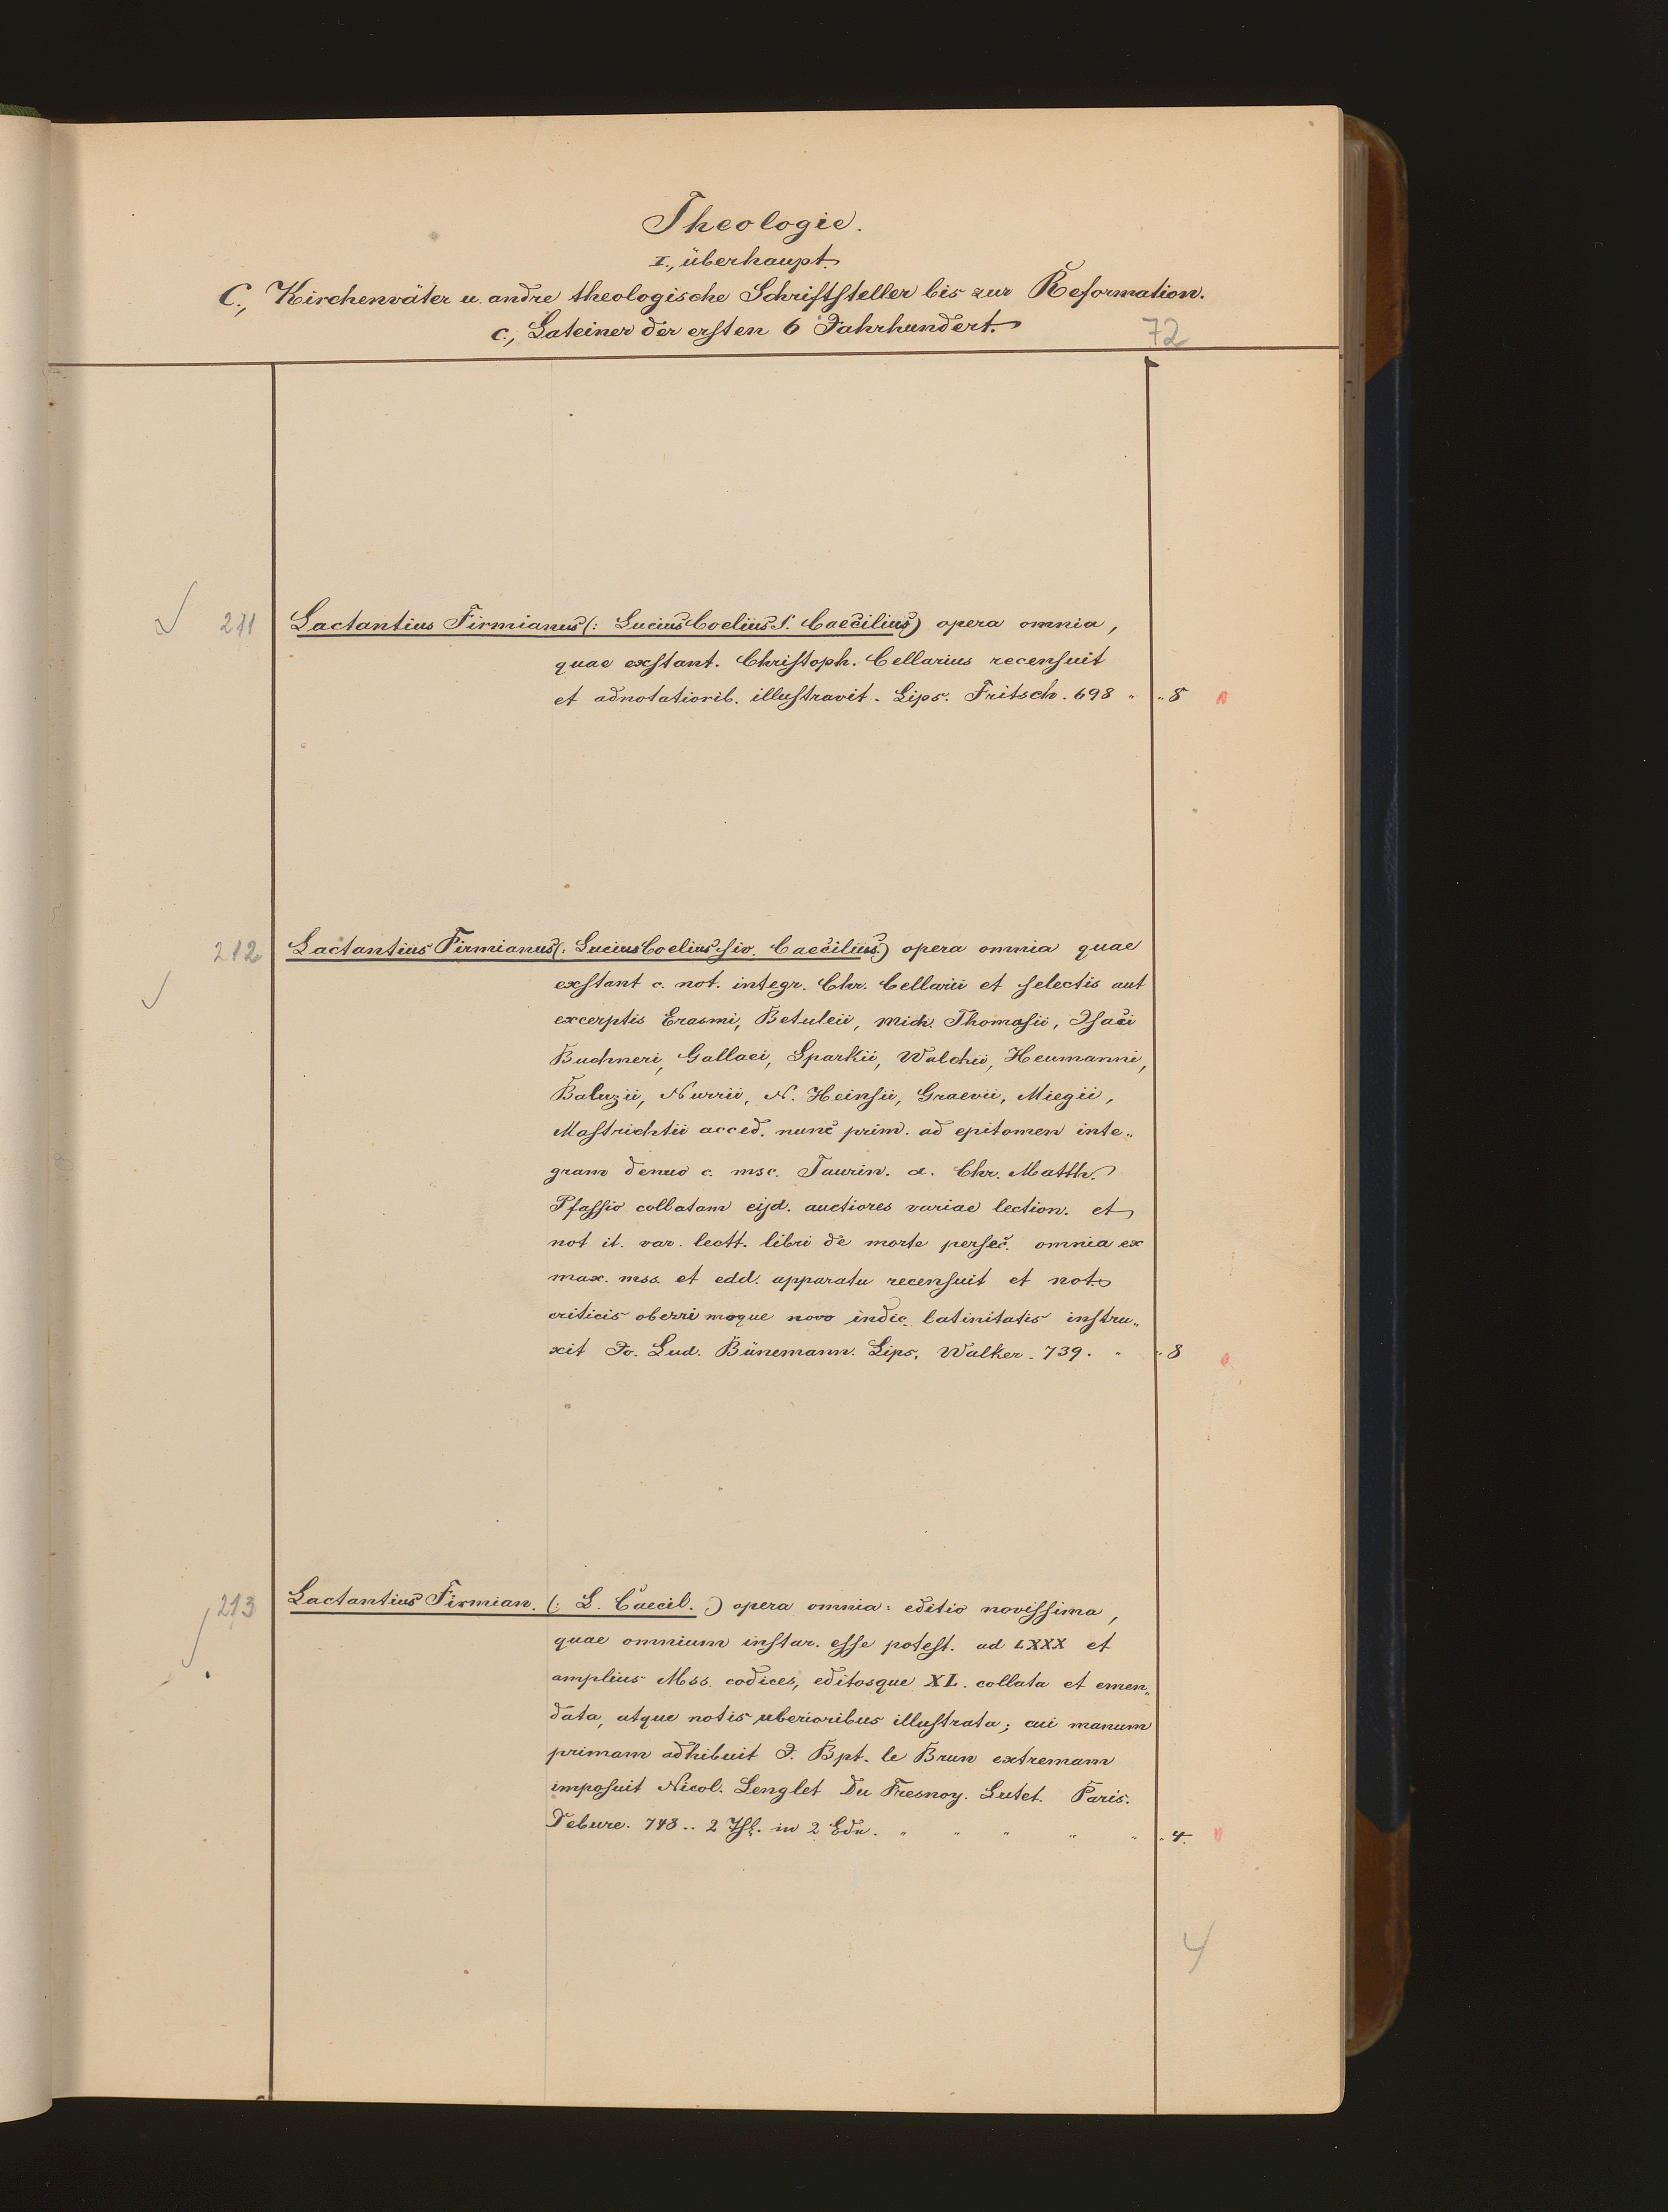 Theologie.
I., überhaupt.
C., Kirchenväter u. andre theologische Schriftsteller bis zur Reformation.
c., Lateiner der ersten 6 Jahrhundert.
72
211 Lactantius Firmianus (: Lucius Coelius s. Caecilius) opera omnia,
quae exstant. Christoph. Cellarius recensuit
et adnotationib. illustravit. Lips. Fritsch. 698 " " 8
212 Lactantius Firmianus (: Lucius Coelius siv. Caecilius.) opera omnia quae
exstant c. not. integr. Chr. Cellarii et selectis aut
excerptis Erasmi, Betuleii, Mich. Thomasii, Isaci
Buchneri, Gallaei, Sparkii, Walchii, Heumanni,
Baluzii, Nurrii, N. Heinsii, Graevii, Miegii,
Mastrichtii acced. nunc prim. ad epitomen inte„
gram denuo c. msc. Taurin. a. Chr. Matth.
Pfaffio collatam eijd. auctiores variae lection. et
not it. var. lectt. libri de morte persec. omnia ex
max. mss. et edd. apparatu recensuit et not.
criticis oberri moque novo indic. latinitatis instru„
xit Jo. Lud. Bünemann. Lips. Walker. 739. " " 8
213 Lactantius Firmian. (: L. Caecil. :) opera omnia: editio novissima,
quae omnium instar. esse potest. ad LXXX et
amplius Mss. codices, editosque XL. collata et emen„
data, atque notis uberioribus illustrata; cui manum
primam adhibuit J. Bpt. le Brun extremam
imposuit Nicol. Lenglet Du Fresnoy. Lutet. Paris.
Debure. 748.. 2 Thl. in 2 Bdn. " " " " " " 4.
4